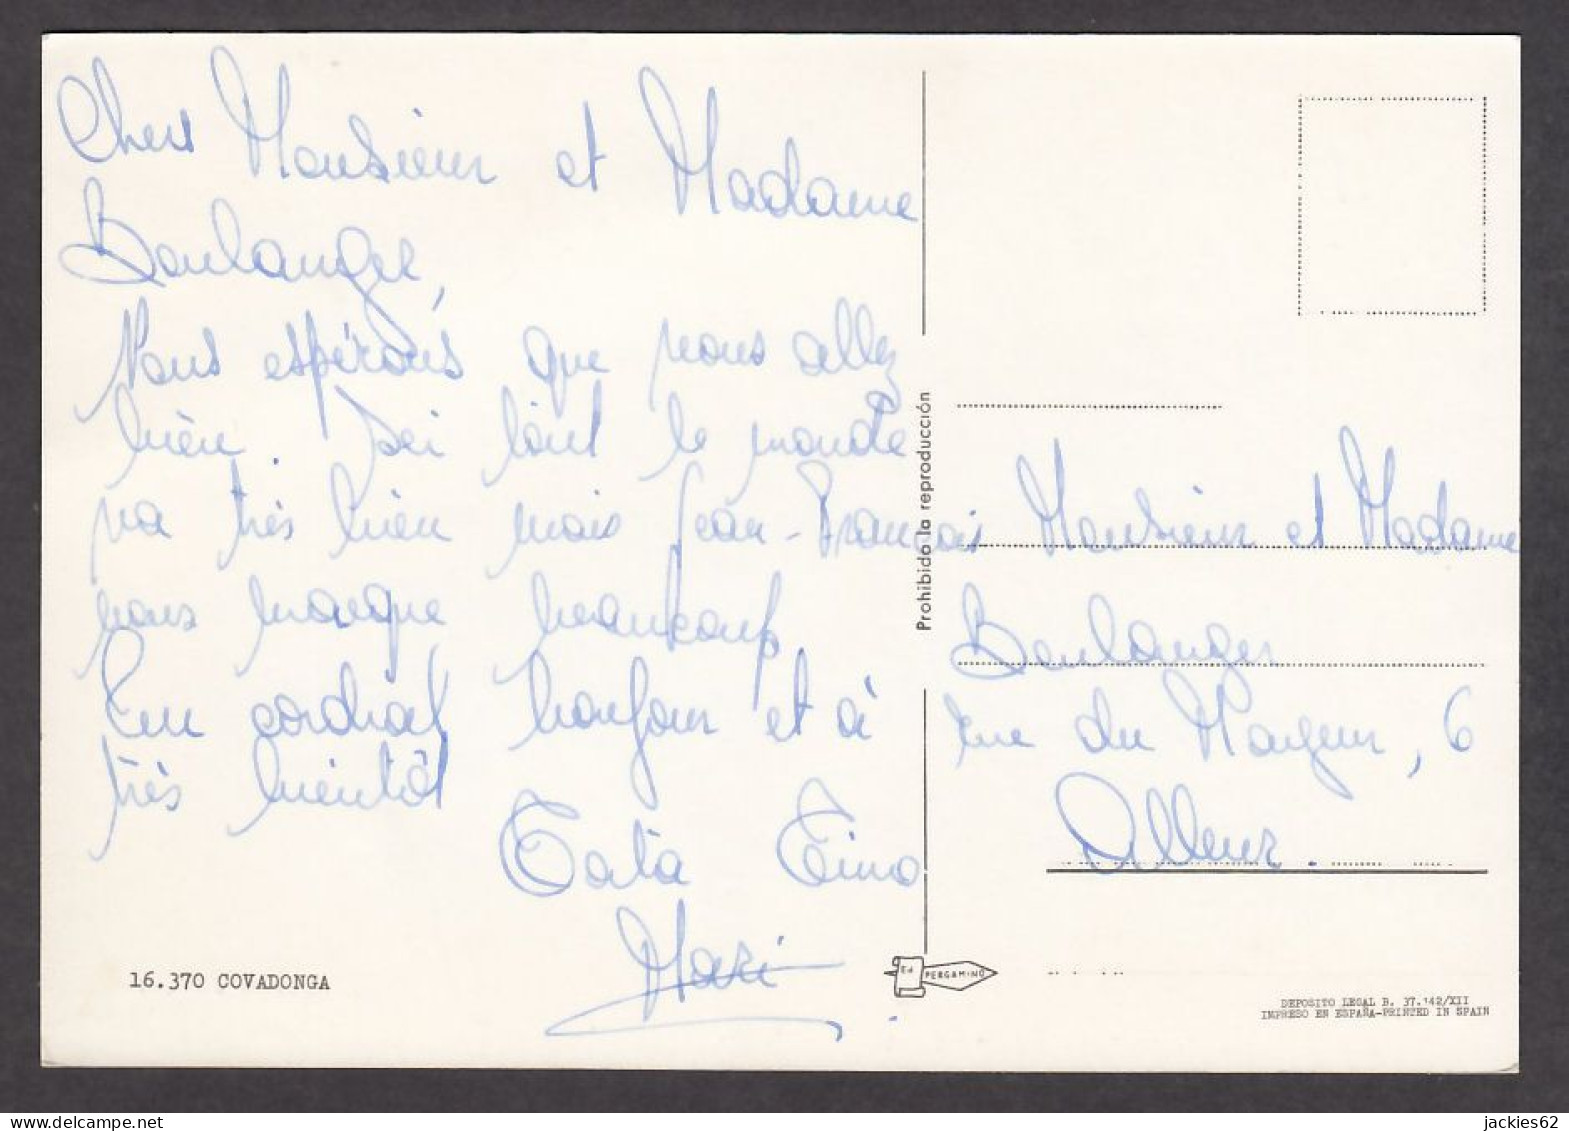 Chers Monsieur et Madame
Boulanger,
Nous espérons que vous allez
bien. Ici tout le monde
va très bien mais Jean-François
nous manque beaucoup
Un cordial bonjour et à
très bientôt
Tata Tino
Mari
16.370 COVADONGA
Prohibida la reproducción
Monsieur et Madame
Boulanger
rue du Mayeur, 6
Alleur.
Ed PERGAMINO
DEPOSITO LEGAL B. 37.142/XII
IMPRESO EN ESPAÑA-PRINTED IN SPAIN
jackies62